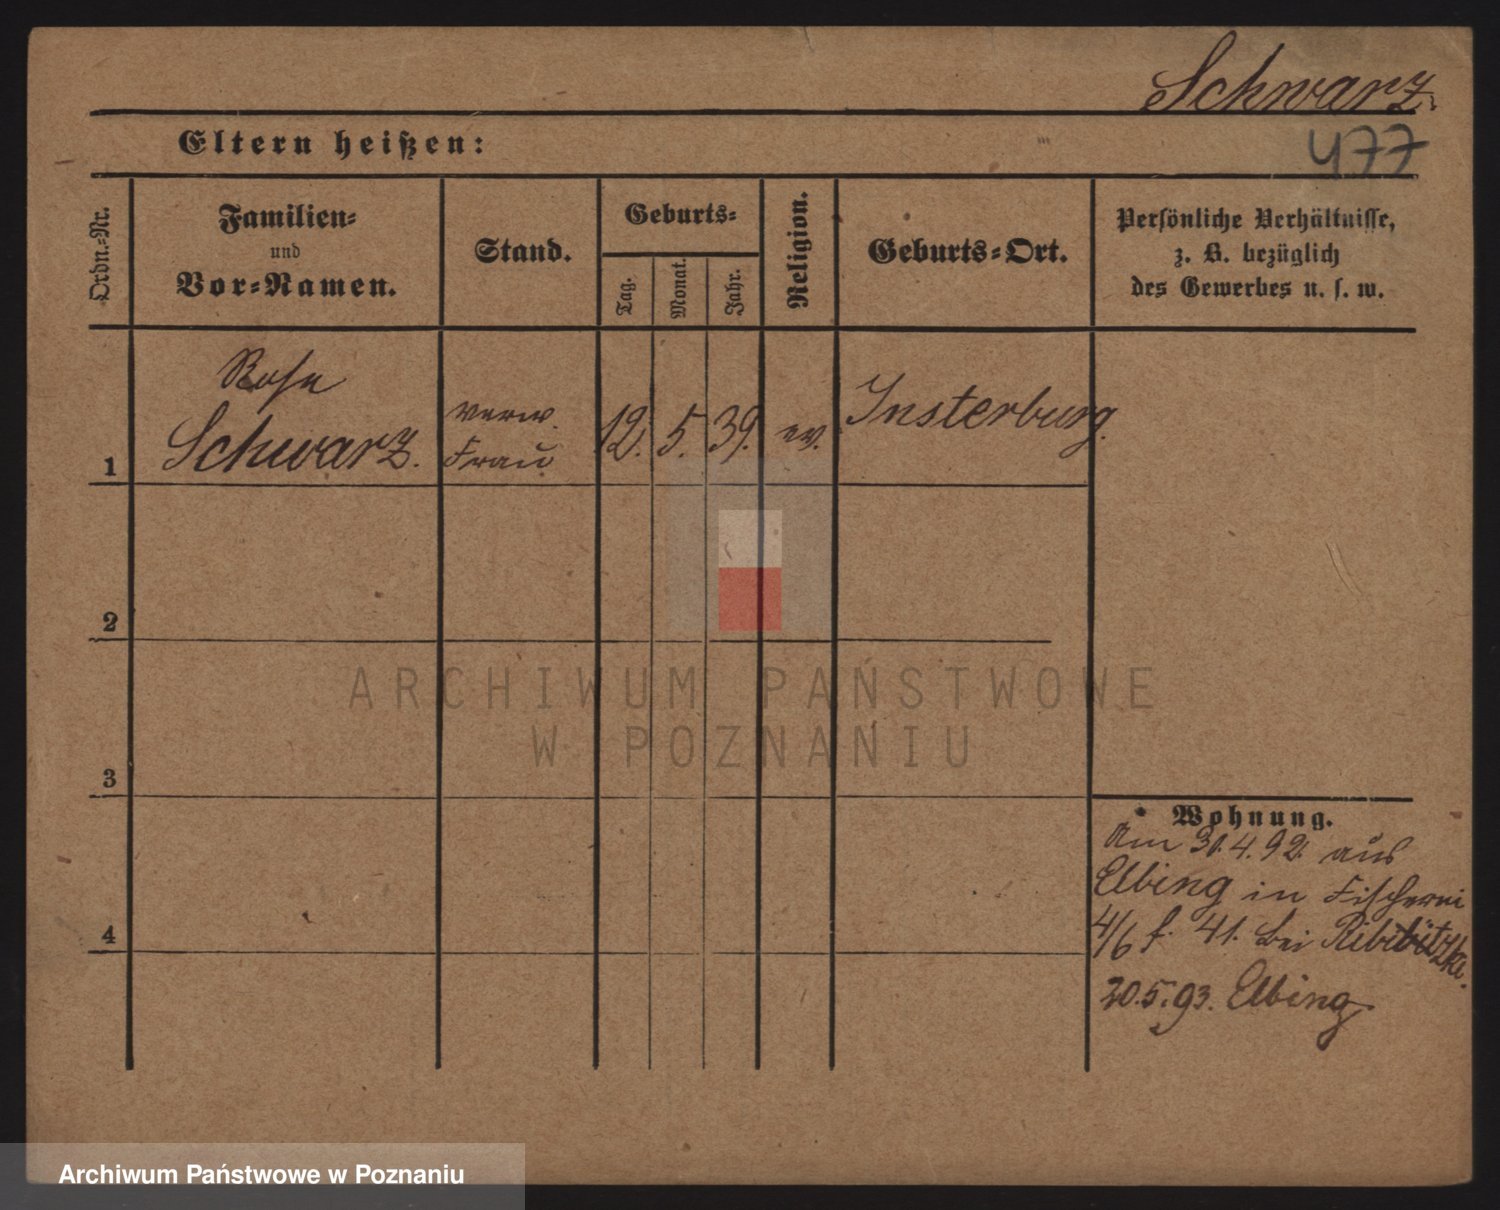 Schwarz.
Eltern heißen:
477
Ordn.-Nr.
Familien-
und
Vor-Namen.
Stand.
Geburts-
Tag.
Monat.
Jahr.
Religion.
Geburts-Ort.
Persönliche Verhältnisse,
z. B. bezüglich
des Gewerbes u. s. w.
1
Rosa
Schwarz.
verw.
Frau
12.
5.
39.
ev.
Insterburg.
2
3
4
Wohnung.
Am 30.4.92. aus
Elbing in Fischerei
4/6 b. 41. bei
20.5.93. Elbing
ARCHIWUM PAŃSTWOWE
W POZNANIU
Archiwum Państwowe w Poznaniu